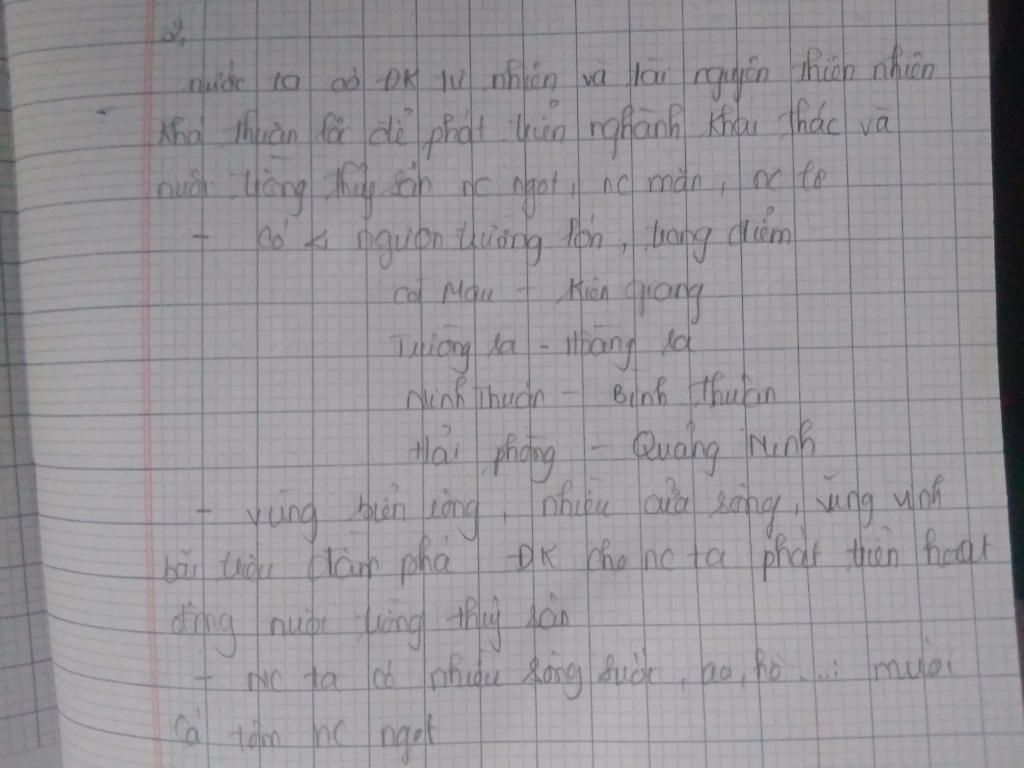 2,
nước ta có ĐK tự nhiên và tài nguyên thiên nhiên
Khá thuận lợi để phát triển nghành khai thác và
nuôi trồng thủy sản nc ngọt, nc mặn, nc lợ
- Có 4 nguôn trường lớn, trọng điểm
Cà Mau - Kiên Giang
Trường Sa - Hoàng Sa
Ninh Thuận - Bình Thuận
Hải phòng - Quảng Ninh
- vùng biển rộng, nhiều cửa sông, vũng vịnh
bãi triều đầm phá ĐK cho nc ta phát triển hoạt
động nuôi trồng thuỷ sản
- nc ta có nhiều sông suối, ao, hồ...: nuôi
Cá tôm nc ngọt